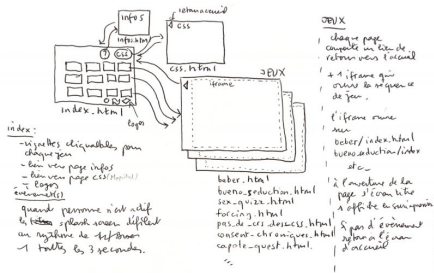 infos
infos.html
retour accueil
css
css.html
?
CSS
index.html
logos
JEUX
iframe
index :
- vignettes cliquables pour
chaque jeu
- lien vers page infos
- lien vers page CSS
- logos
événement(s)
quand personne n'est actif
les splash screen défilent
au rythme de
1 toutes les 3 secondes.
beber.html
bueno_seduction.html
sex_quizz.html
forcing.html
pas_de_ces_dess.html
consent-chroniques.html
capote-quest.html
JEUX
chaque page
comporte un lien de
retour vers l'accueil
+ 1 iframe qui
ouvre la séquence
de jeu.
l'iframe ouvre
sur
beber/index.html
bueno_seduction/index
etc
à l'ouverture de la
page l'écran titre
s'affiche en surimpression
Si pas d'événement
retour à l'écran
d'accueil